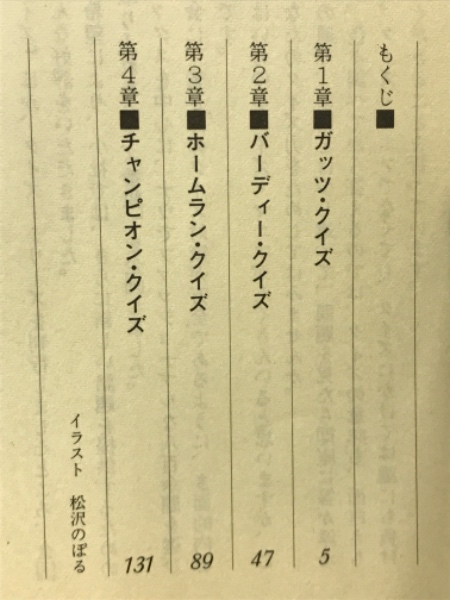 もくじ■
第1章■ガッツ・クイズ 5
第2章■バーディー・クイズ 47
第3章■ホームラン・クイズ 89
第4章■チャンピオン・クイズ 131
イラスト 松沢のぼる